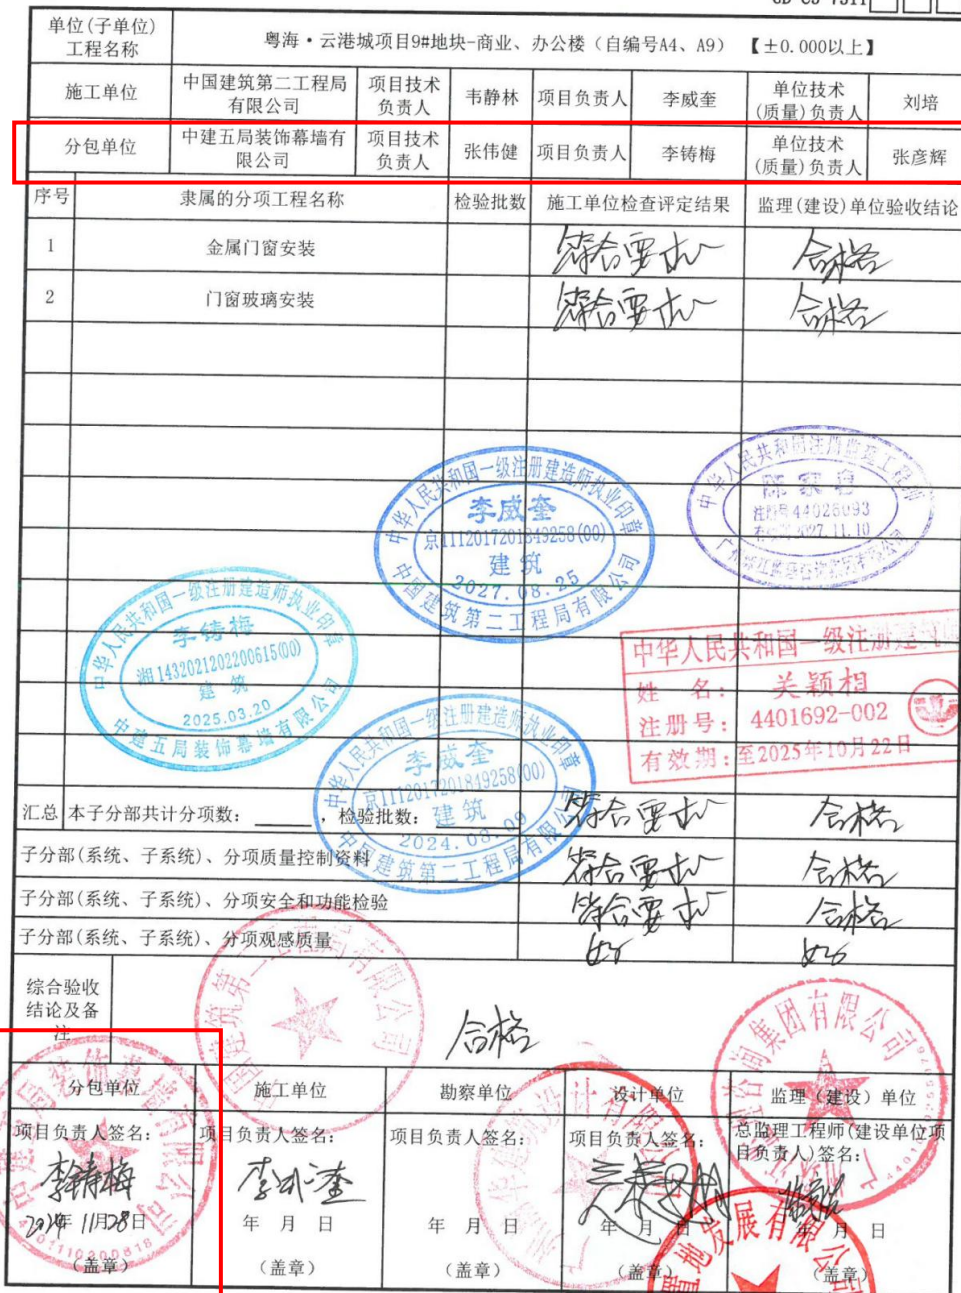 单位(子单位)
工程名称
粤海•云港城项目9#地块-商业、办公楼（自编号A4、A9）【±0.000以上】
施工单位
中国建筑第二工程局
有限公司
项目技术
负责人
韦静林
项目负责人
李威奎
单位技术
(质量)负责人
刘培
分包单位
中建五局装饰幕墙有
限公司
项目技术
负责人
张伟健
项目负责人
李铸梅
单位技术
(质量)负责人
张彦辉
序号
隶属的分项工程名称
检验批数
施工单位检查评定结果
监理(建设)单位验收结论
1
金属门窗安装
符合要求
合格
2
门窗玻璃安装
符合要求
合格
中华人民共和国一级注册建造师执业印章
李威奎
京1112017201849258(00)
建筑
2027.08.25
中国建筑第二工程局有限公司
中华人民共和国注册监理工程师
注册号44026093
2027.11.10
中华人民共和国一级注册建造师执业印章
李铸梅
湘1432021202200615(00)
建筑
2025.03.20
中建五局装饰幕墙有限公司
中华人民共和国一级注册建筑师
姓 名：关颖相
注册号：4401692-002
有效期：至2025年10月22日
中华人民共和国一级注册建造师执业印章
李威奎
京1112017201849258(00)
建筑
2024.08.09
中国建筑第二工程局有限公司
汇总
本子分部共计分项数：
，检验批数：
符合要求
合格
子分部(系统、子系统)、分项质量控制资料
符合要求
合格
子分部(系统、子系统)、分项安全和功能检验
符合要求
合格
子分部(系统、子系统)、分项观感质量
好
好
综合验收
结论及备
注
合格
分包单位
施工单位
勘察单位
设计单位
监理（建设）单位
项目负责人签名：
项目负责人签名：
项目负责人签名：
项目负责人签名：
总监理工程师(建设单位项
目负责人)签名：
李铸梅
李威奎
2024年 11月28日
年 月 日
年 月 日
年 月 日
年 月 日
（盖章）
（盖章）
（盖章）
（盖章）
（盖章）